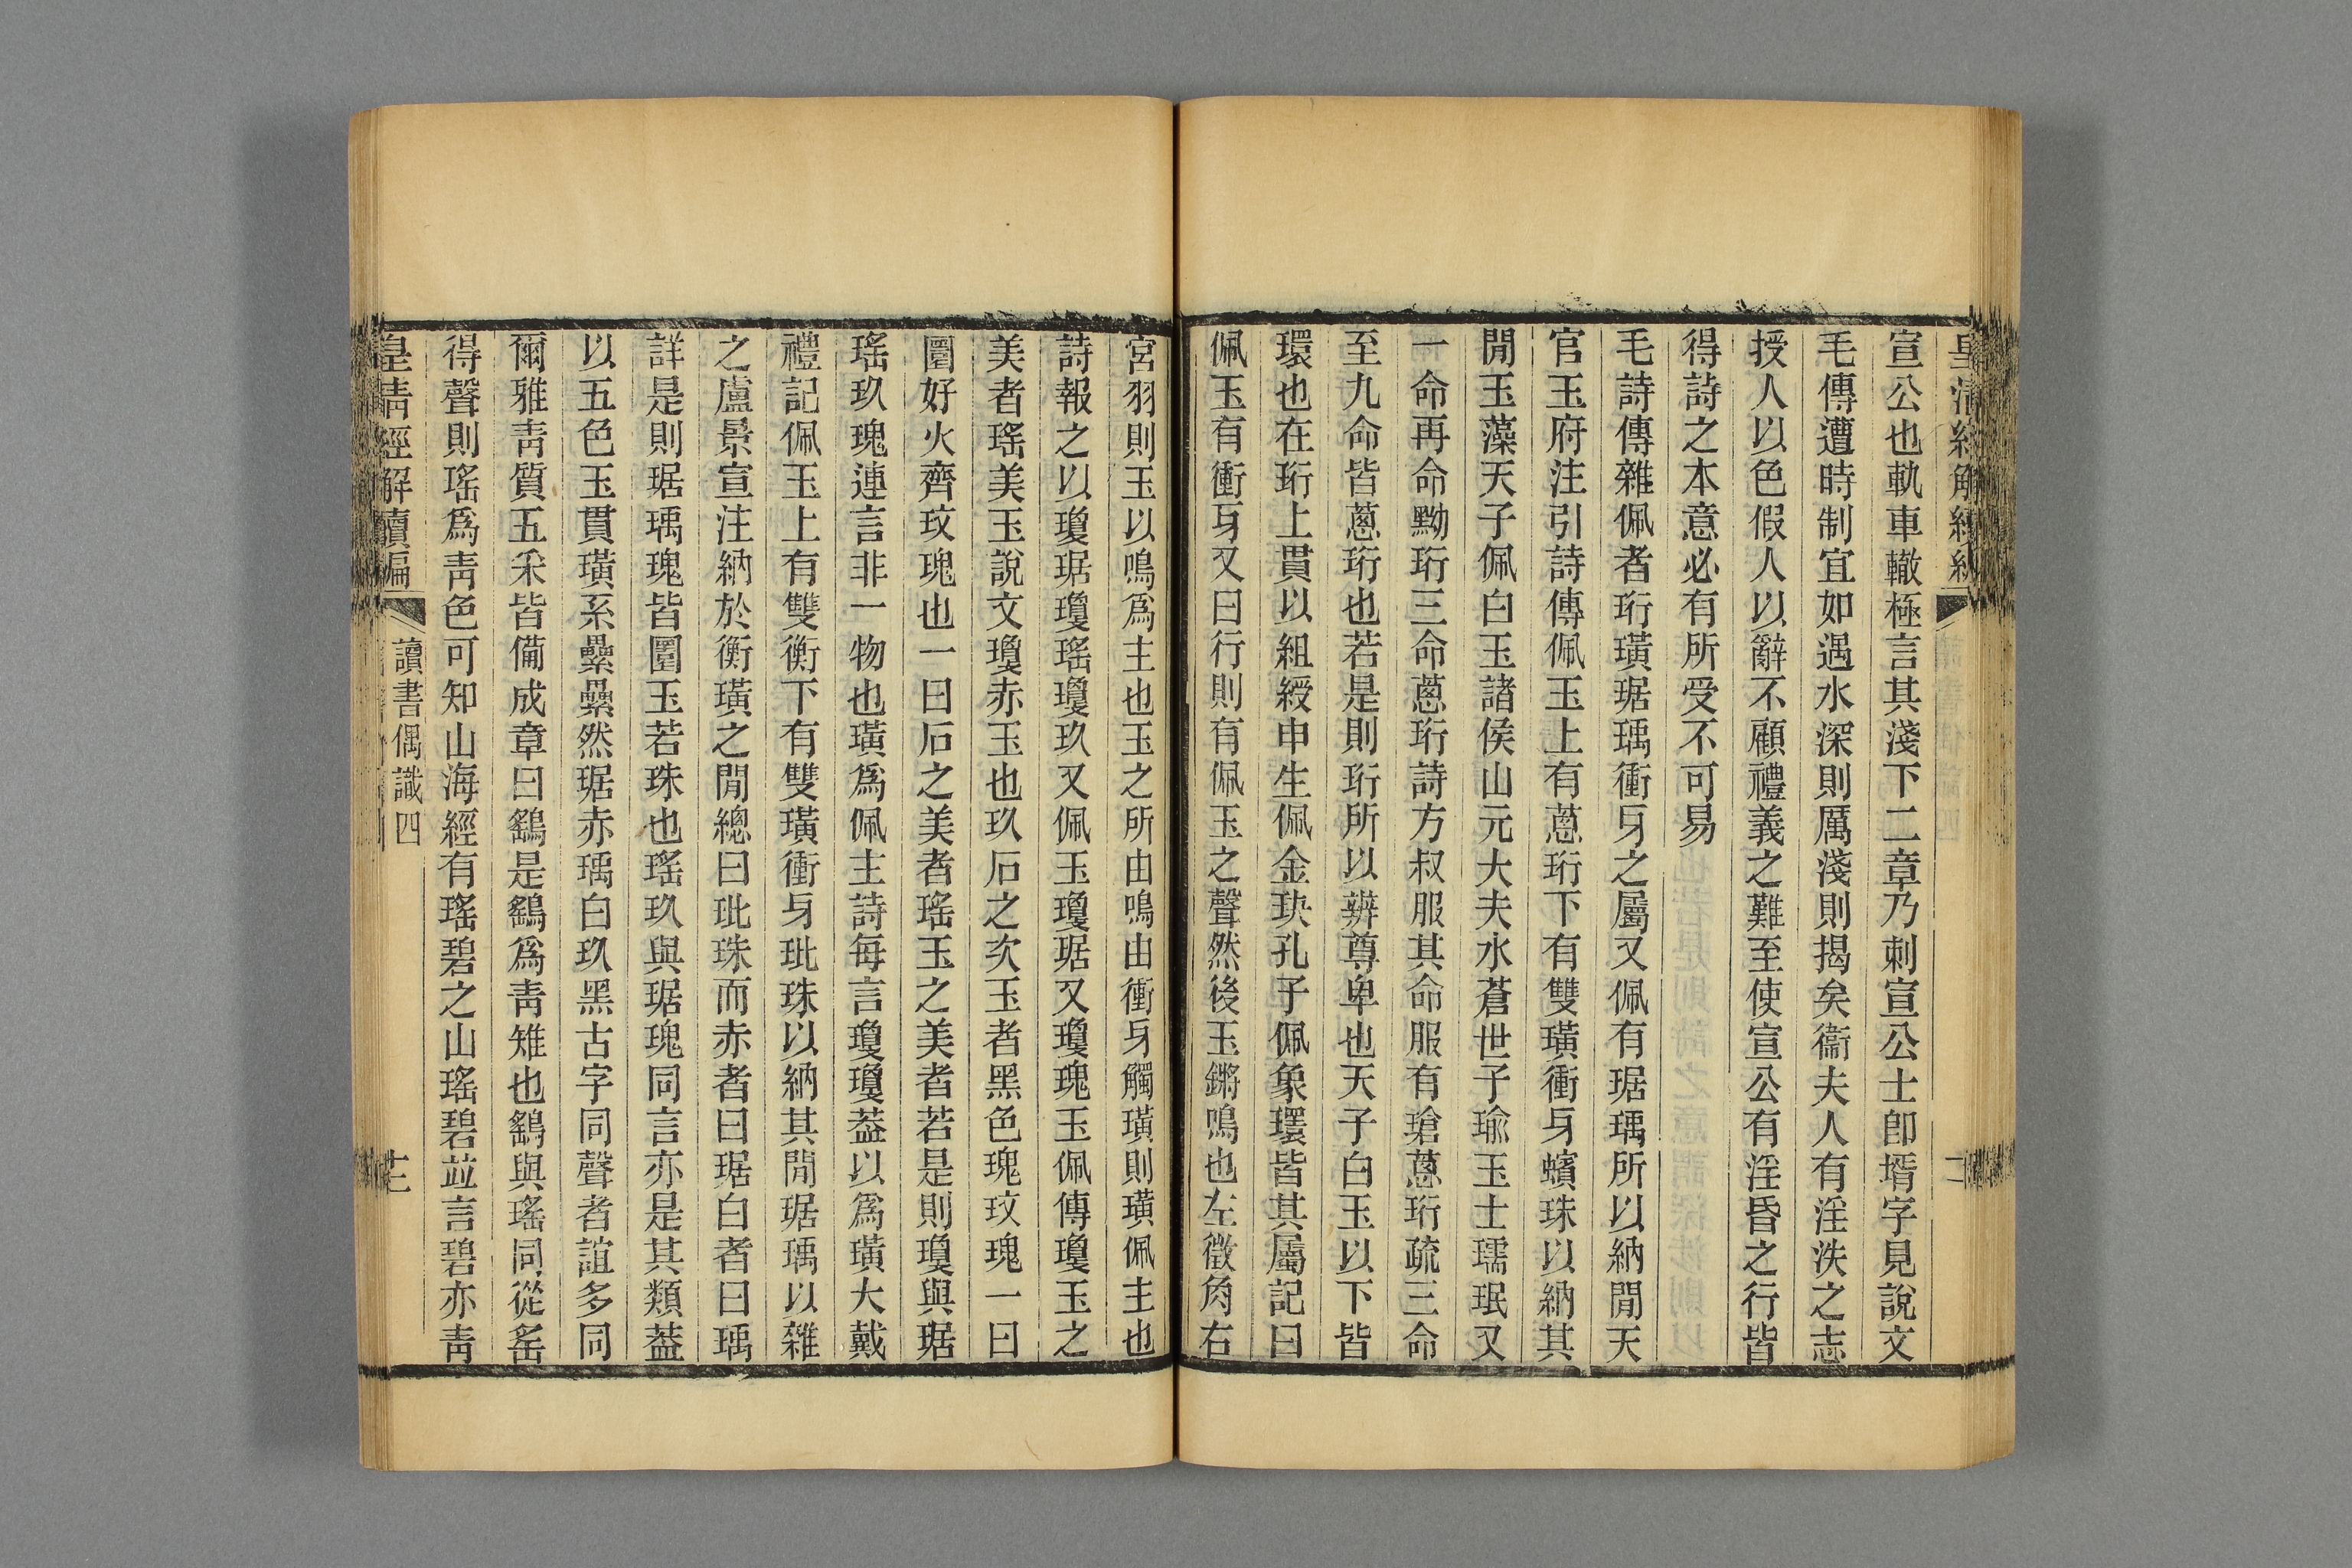 宣公也軌車轍極言其淺下二章乃刺宣公士卽壻字見說文
毛傳遭時制宜如遇水深則厲淺則揭矣衞夫人有淫泆之志
授人以色假人以辭不顧禮義之難至使宣公有淫昏之行皆
得詩之本意必有所受不可易
毛詩傳雜佩者珩璜琚瑀衝牙之屬又佩有琚瑀所以納閒天
官玉府注引詩傳佩玉上有蔥珩下有雙璜衝牙蠙珠以納其
閒玉藻天子佩白玉諸侯山元大夫水蒼世子瑜玉士瓀珉又
一命再命黝珩三命蔥珩詩方叔服其命服有瑲蔥珩疏三命
至九命皆蔥珩也若是則珩所以辨尊卑也天子白玉以下皆
環也在珩上貫以組綬申生佩金玦孔子佩象環皆其屬記曰
佩玉有衝牙又曰行則有佩玉之聲然後玉鏘鳴也左徵角右
宮羽則玉以鳴爲主也玉之所由鳴由衝牙觸璜則璜佩主也
詩報之以瓊琚瓊瑤瓊玖又佩玉瓊琚又瓊瑰玉佩傳瓊玉之
美者瑤美玉說文瓊赤玉也玖石之次玉者黑色瑰玟瑰一曰
圜好火齊玟瑰也一曰石之美者瑤玉之美者若是則瓊與琚
瑤玖瑰連言非一物也璜爲佩主詩每言瓊瓊葢以爲璜大戴
禮記佩玉上有雙衡下有雙璜衝牙玭珠以納其閒琚瑀以雜
之盧景宣注納於衡璜之閒總曰玭珠而赤者曰琚白者曰瑀
詳是則琚瑀瑰皆圜玉若珠也瑤玖與琚瑰同言亦是其類葢
以五色玉貫璜系纍纍然琚赤瑀白玖黑古字同聲者誼多同
爾雅靑質五采皆備成章曰鷂是鷂爲靑雉也鷂與瑤同從䍃
得聲則瑤爲靑色可知山海經有瑤碧之山瑤碧並言碧亦靑
皇淸經解續編
讀書偶識四
十二